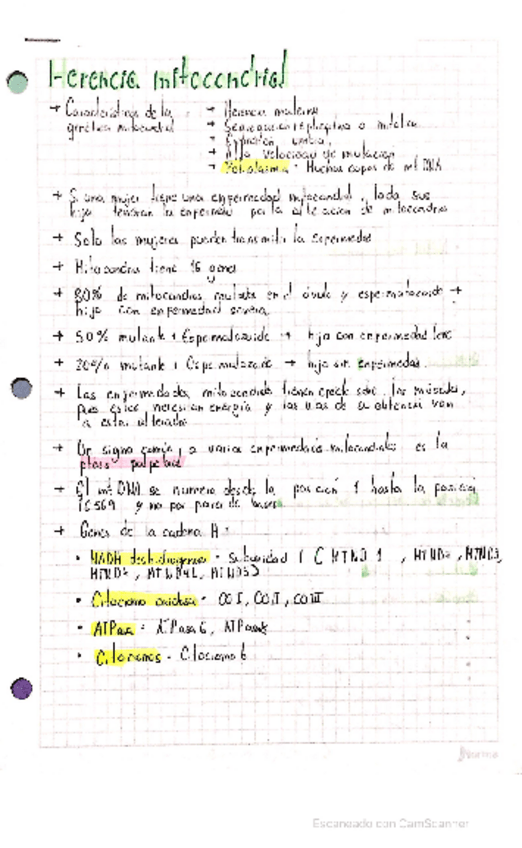 Herencia mitocondrial
→ Características de la
genética mitocondrial
→ Herencia materna
→ Segregación replicativa o mitótica
→ Expresión umbral
→ Alta velocidad de mutación
→ Poliplasmia - Muchas copias de mtDNA
→ Si una mujer tiene una enfermedad mitocondrial, todos sus
hijos tendrán la enfermedad por la alteración de mitocondrias
→ Solo las mujeres pueden transmitir la enfermedad
→ Mitocondria tiene genes
→ 80% de mitocondrias mutadas en el óvulo y espermatozoide →
hijo con enfermedad severa
→ 50% mutante + Espermatozoide → hijo con enfermedad leve
→ 20% mutante + Espermatozoide → hijo sin enfermedad
→ Las enfermedades mitocondriales tienen efecto sobre los músculos,
pues estos necesitan energía y las vías de su obtención van
a estar alteradas
→ Un signo común a varias enfermedades mitocondriales es la
ptosis palpebral
→ El mtDNA se numera desde la posición 1 hasta la posición
16569 y no por pares de bases
→ Genes de la cadena H:
• NADH deshidrogenasa - Subunidad 1 (MTND1, MTND2, MTND3,
MTND4L,
• Citocromo oxidasa - CO I, CO II, CO III
• ATPasa - ATPasa 6, ATPasa8
• Citocromos - Citocromo b
Norma
Escaneado con CamScanner